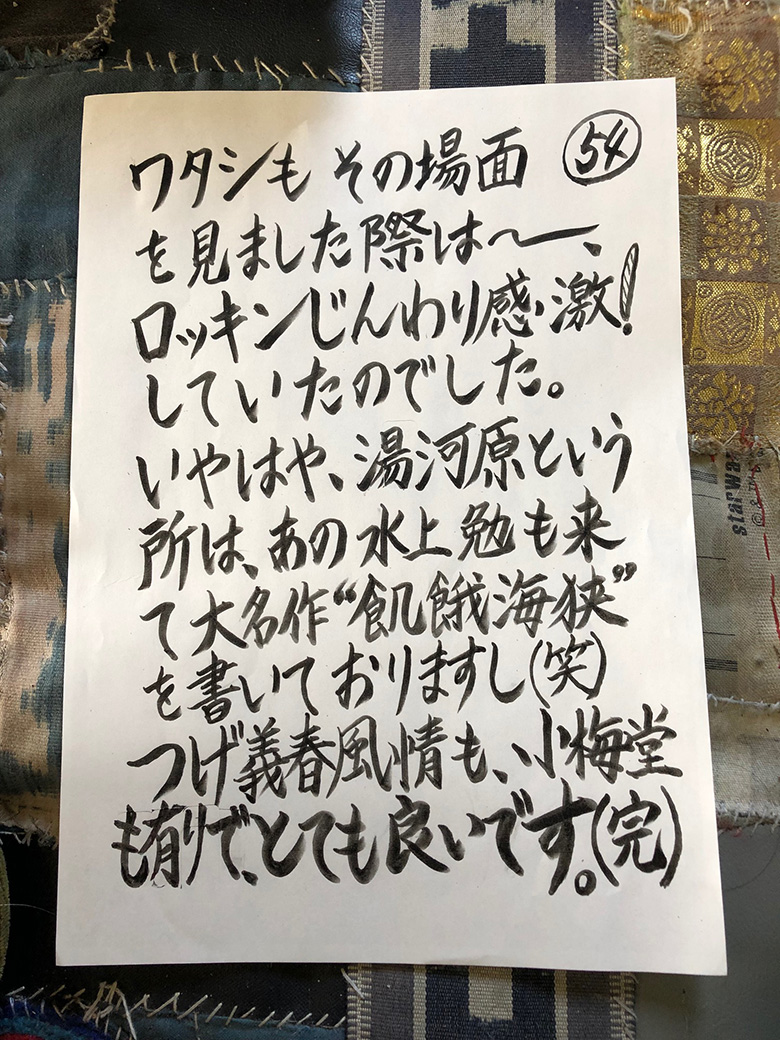 ワタシも その場面 54
を見ました際は〜ー、
ロッキンじんわり感激!
していたのでした。
いやはや、湯河原という
所は、あの水上勉も来
て大名作“飢餓海狭”
を書いておりますし(笑)
つげ義春風情も、小梅堂
も有りで、とても良いです。(完)
starwars